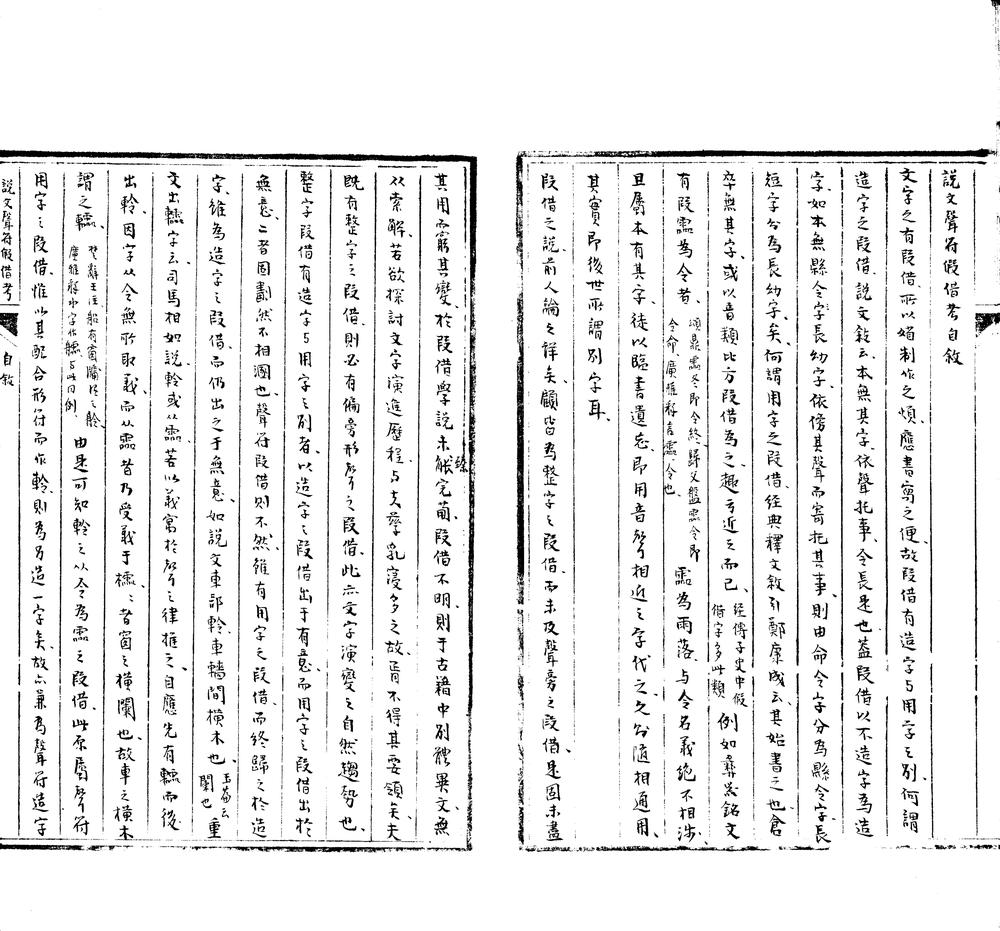 說文聲符假借考自敘
文字之有叚借所以婚制作之煩應書寫之便故叚借有造字与用字之别何謂
造字之叚借説文敘云本無其字依聲托事令長是也葢叚借以不造字為造
字如本無縣令字長幼字依傍其聲而寄托其事則由命令字分為縣令字長
短字分為長幼字矣何謂用字之叚借經典釋文敘引鄭康成云其始書之也倉
卒無其字或以音類比方叚借為之趣于近之而已經傳子史中假借字多此類例如彝器銘文
有叚霝為令者頌鼎霝冬即令終歸父盤霝令即令命廣雅釋言霝令也霝為雨落与令名義絶不相涉
且屬本有其字徒以臨書遺忘即用音聲相近之字代之久分隨相通用
其實即後世所謂别字耳
叚借之説前人論之詳矣顧皆為整字之叚借而未及聲旁之叚借是固未盡
其用而窮其變於叚借學説未能完萄叚借不明則于古籍中别體異文無
緣从索解若欲探討文字演進歷程与夫孳乳寖多之故胥不得其要領矣夫
既有整字之叚借則必有偏旁形聲之叚借此亦文字演變之自然趨勢也
整字叚借有造字与用字之别者以造字之叚借出于有意而用字之叚借出於
無意二者固劃然不相溷也聲符叚借則不然雖有用字之叚借而終歸之於造
字雖為造字之叚借而仍出之于無意如説文車部軨車轖間横木也玉篇云闌也重
文出轜字云司馬相如説軨或从霝若以義寓於聲之律推之自應先有轜而後
出軨因字从令無所取義而从霝者乃受義于櫺櫺者窗之横闌也故車之横木
謂之轜楚辭王注船有窗牖名之舲廣雅釋水字作艫与此同例由是可知軨之以令為霝之叚借此原屬聲符
用字之叚借惟以其配合形符而作軨則為另造一字矣故亦兼為聲符造字
説文聲符假借考
自敘